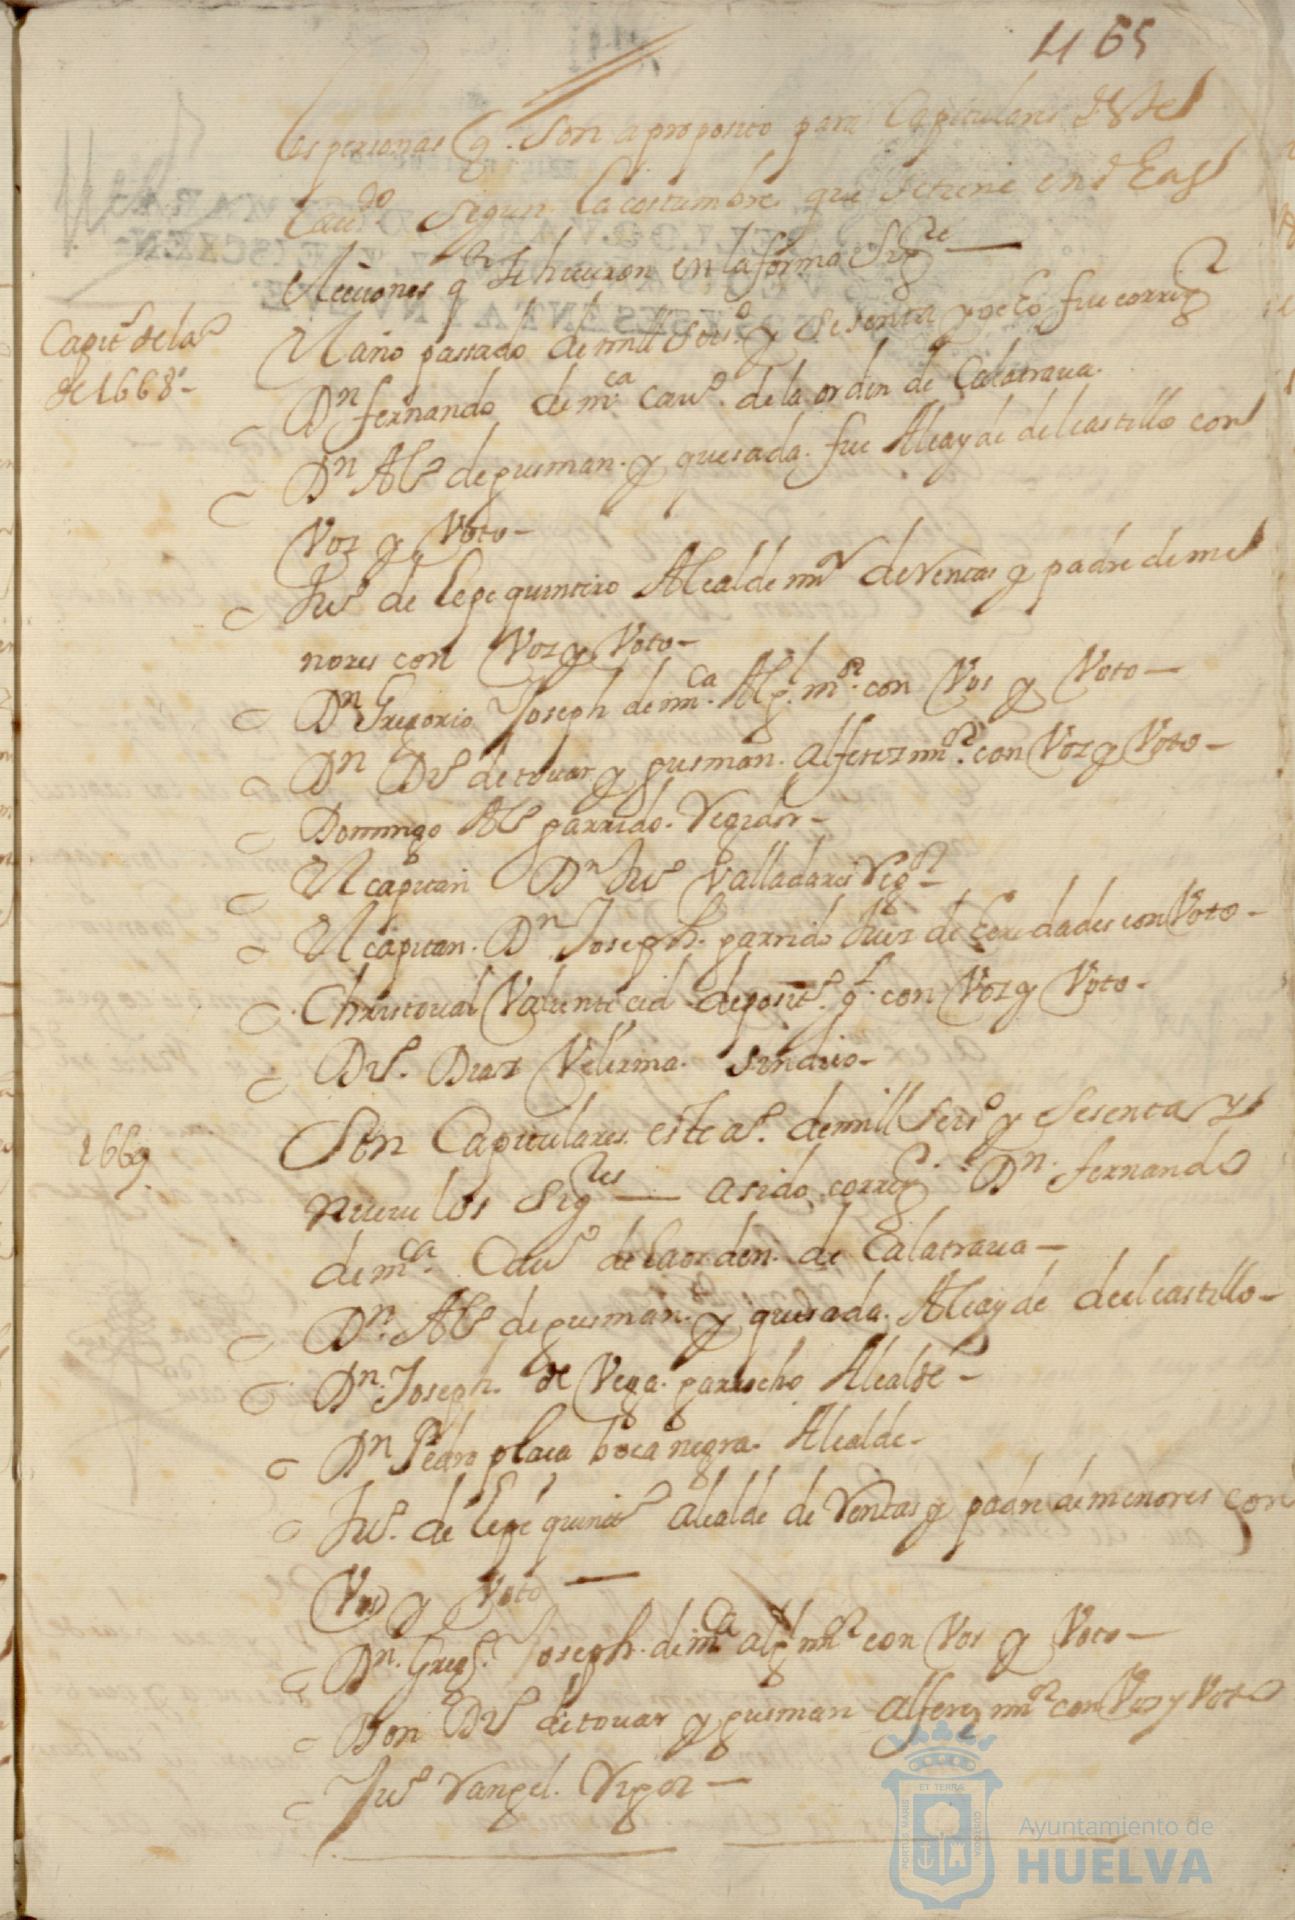 465
las personas q. son a proposito para Capitulares deste
cau.do segun la costumbre que se tiene en las
elecciones q se hicieron en la forma sig.te —
Capit.s de el a.o
de 1668 –
El año passado de mill seis.o y sesenta y ocho fue corrig.r
Dn fernando de m.ca cau.o de la orden de Calatraua.
Dn Al.o de gusman. y quesada. fue Alcayde del castillo con
Voz y Voto –
Ju.o de lepe quintero Alcalde m.r de Ventas y padre de me
nores con Voz y Voto –
Dn Gregorio Joseph de m.ca Alg.l m.or con Vos y Voto –
Dn D.o de touar y gusman. alferez m.or con Voz y Voto –
Domingo Al.o garrido. Regidor –
El capitan Dn Ju.o Valladares Reg.or –
El capitan. Dn Joseph. garrido Juez de heredades con Voto –
Christoual Valiente cid deposit.o g.l con Voz y Voto –
D.o Diaz Velerma. sindico –
1669
Son Capitulares este a.o de mill seis.o y sesenta y
nueue los sig.tes — a sido correg.r Dn. fernando
de m.ca Cau.o de la orden. de Calatraua –
Dn. Al.o de gusman. y quesada. Alcayde del castillo –
Dn. Joseph. de Vega. garrocho Alcalde –
Dn Pedro plaça boca negra. Alcalde –
Ju.o de lepe quint.o alcalde de Ventas y padre de menores con
Vos y Voto —
Dn. Greg.o Joseph. de m.ca alg.l m.or con Vos y Voto –
Don D.o de touar y gusman alferez m.or con Voz y Voto
Ju.o Rangel. Rigor –
PORTUS MARIS
ET TERRAE
CUSTODIA
Ayuntamiento de
HUELVA